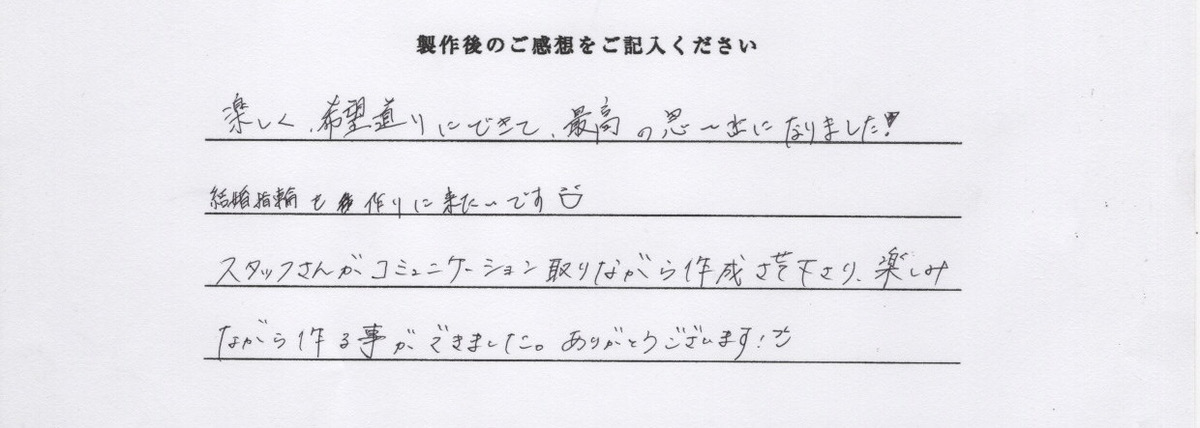 製作後のご感想をご記入ください
楽しく、希望道りにできて、最高の思い出になりました!
結婚指輪も 作りに来たいです
スタッフさんがコミュニケーション取りながら作成させて下さり、楽しみ
ながら作る事ができました。ありがとうございます!